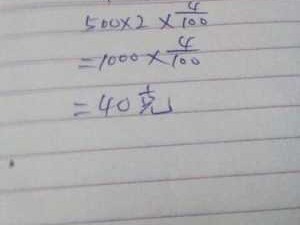 500×2×4/100
=1000×4/100
=40克